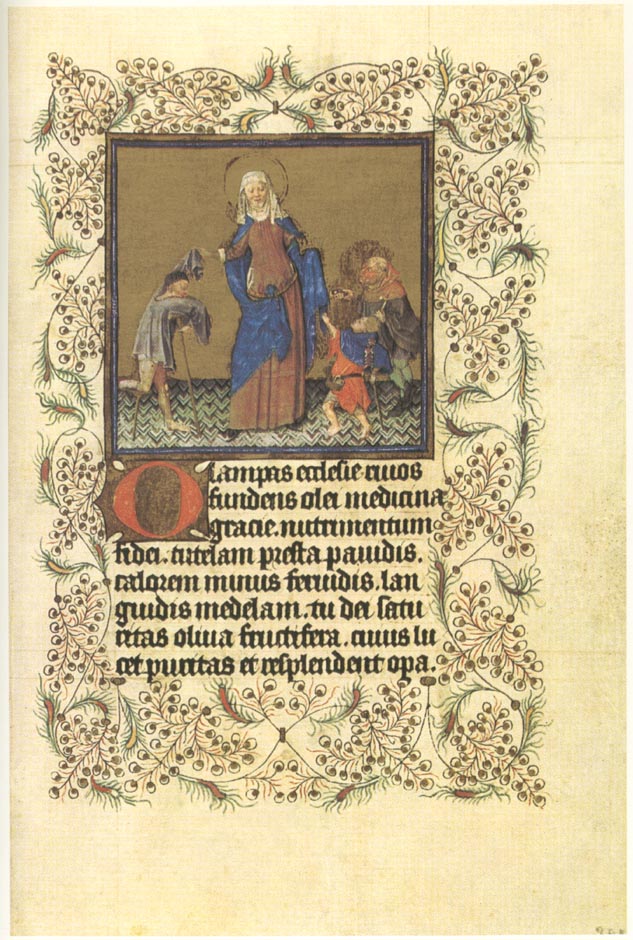 O lampas ecclesie riuos
fundens olei medicina
gracie. nutrimentum
fidei. tutelam presta pauidis.
calorem minus feruidis. lan
guidis medelam. tu dei satu
ritas oliua fructifera. cuius lu
cet puritas et resplendent opa.